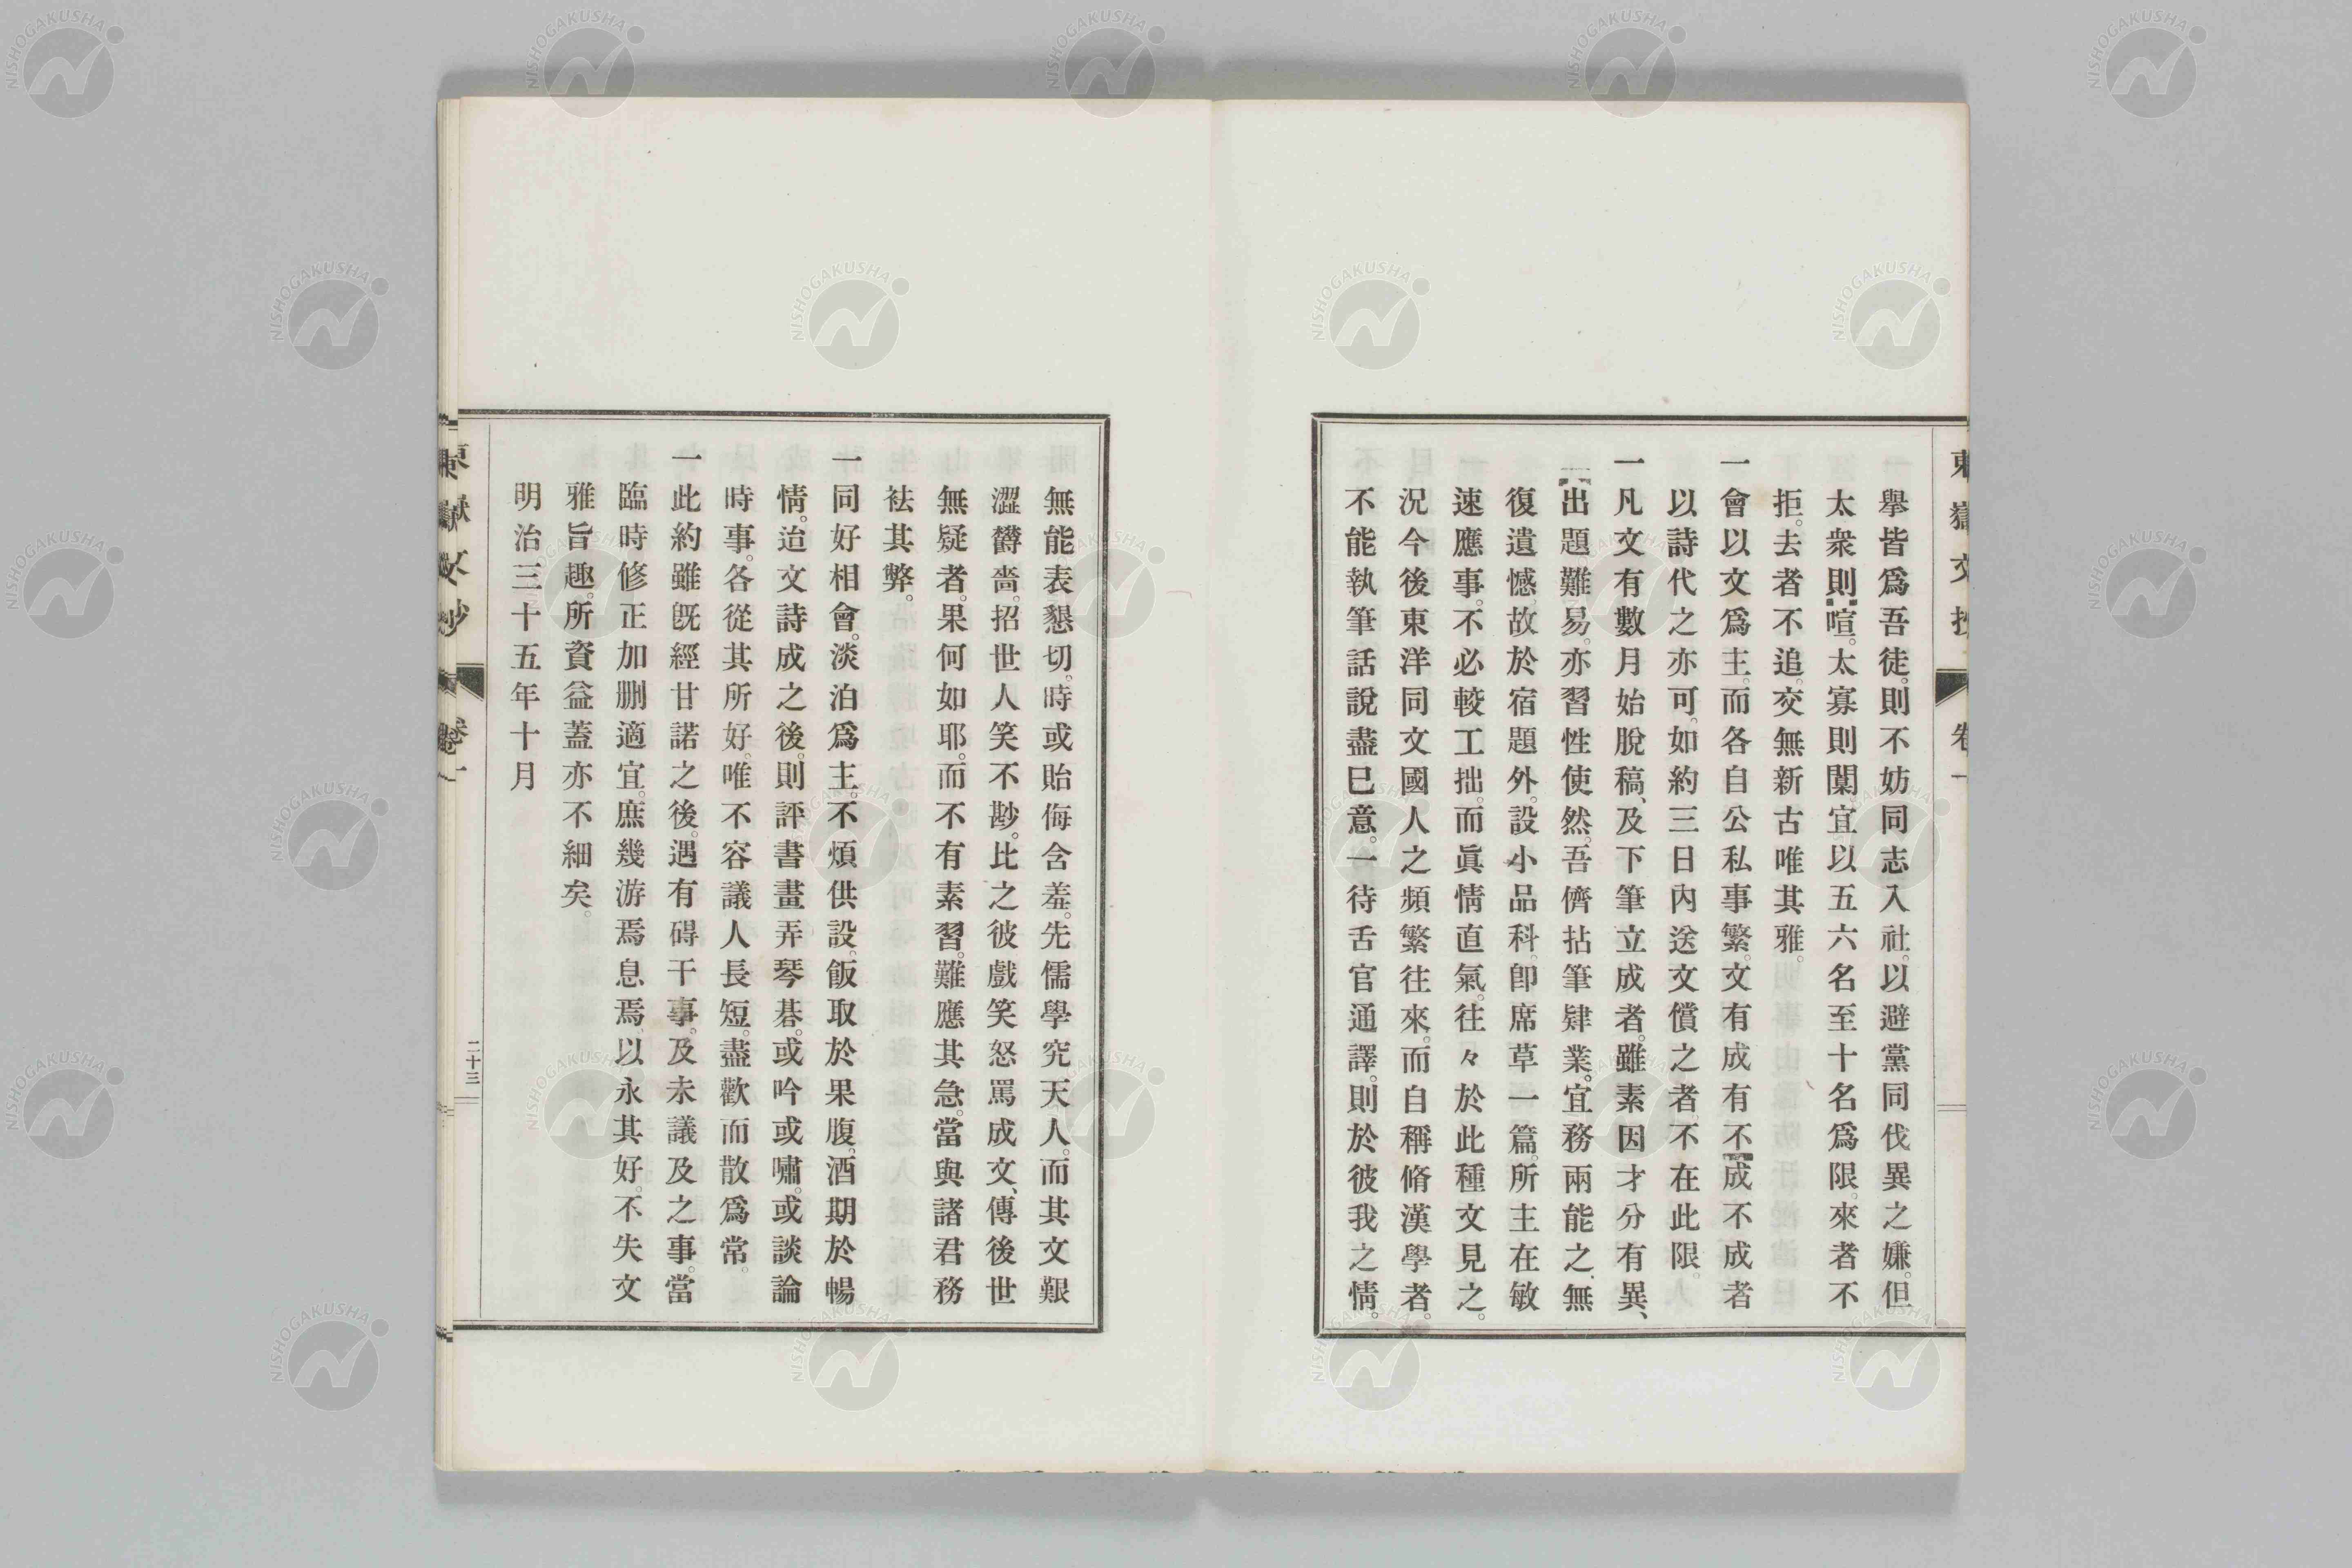 東嶽文抄
卷一
擧皆爲吾徒。則不妨同志入社。以避黨同伐異之嫌。但
太衆則喧。太寡則闃。宜以五六名至十名爲限。來者不
拒。去者不追。交無新古唯其雅。
一會以文爲主。而各自公私事繁。文有成有不成不成者
以詩代之亦可。如約三日內送文償之者。不在此限。
一凡文有數月始脫稿、及下筆立成者。雖素因才分有異、
一出題難易。亦習性使然。吾儕拈筆肄業。宜務兩能之。無
復遺憾。故於宿題外。設小品科。卽席草一篇。所主在敏
速應事。不必較工拙。而眞情直氣。往々於此種文見之。
況今後東洋同文國人之頻繁往來。而自稱脩漢學者。
不能執筆話說盡已意。一待舌官通譯。則於彼我之情。
無能表懇切。時或貽侮含羞。先儒學究天人。而其文艱
澀欝嗇。招世人笑不尠。比之彼戲笑怒罵成文、傳後世
無疑者。果何如耶。而不有素習。難應其急。當與諸君務
袪其弊。
一同好相會。淡泊爲主。不煩供設。飯取於果腹。酒期於暢
情。迨文詩成之後。則評書畫弄琴碁。或吟或嘯。或談論
時事。各從其所好。唯不容議人長短。盡歡而散爲常。
一此約雖旣經甘諾之後。遇有碍干事。及未議及之事。當
臨時修正加删適宜。庶幾游焉息焉。以永其好。不失文
雅旨趣。所資益蓋亦不細矣。
明治三十五年十月
卷一
二十三
NISHOGAKUSHA